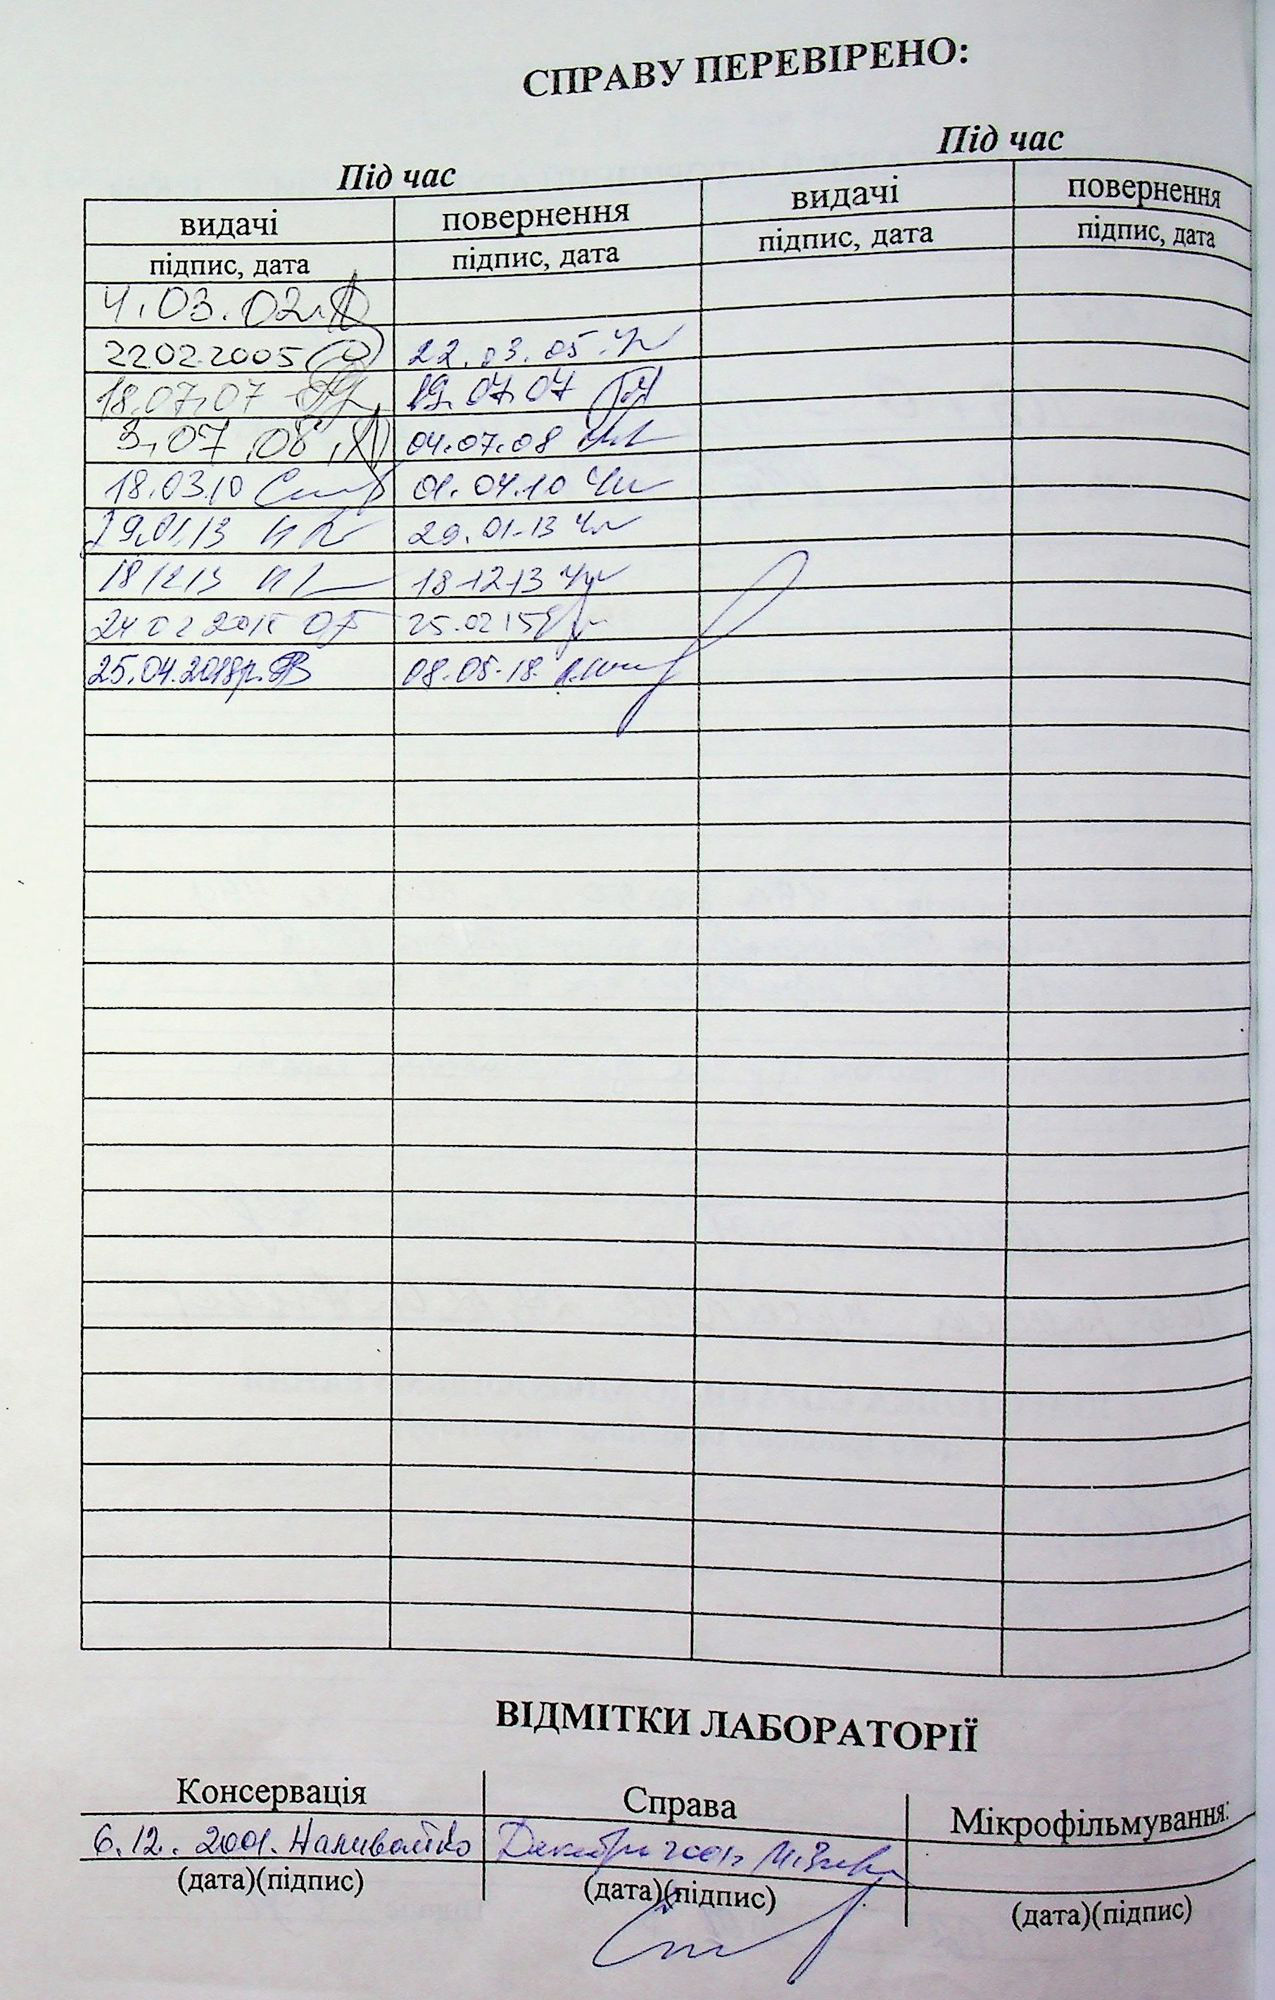 СПРАВУ ПЕРЕВІРЕНО:
Під час Під час
видачі повернення видачі повернення
підпис, дата підпис, дата підпис, дата підпис, дата
4.03.02
22.02.2005 22.03.05.
18.07.07 19.07.07
3.07.08 04.07.08
18.03.10 01.04.10
29.01.13 29.01.13
18 12 13 18-12-13
24 02 2015 25.02 15
25.04.2018р. 08.05.18.
ВІДМІТКИ ЛАБОРАТОРІЇ
Консервація Справа Мікрофільмування:
6.12. 2001. Наливайко 2001
(дата)(підпис) (дата)(підпис) (дата)(підпис)